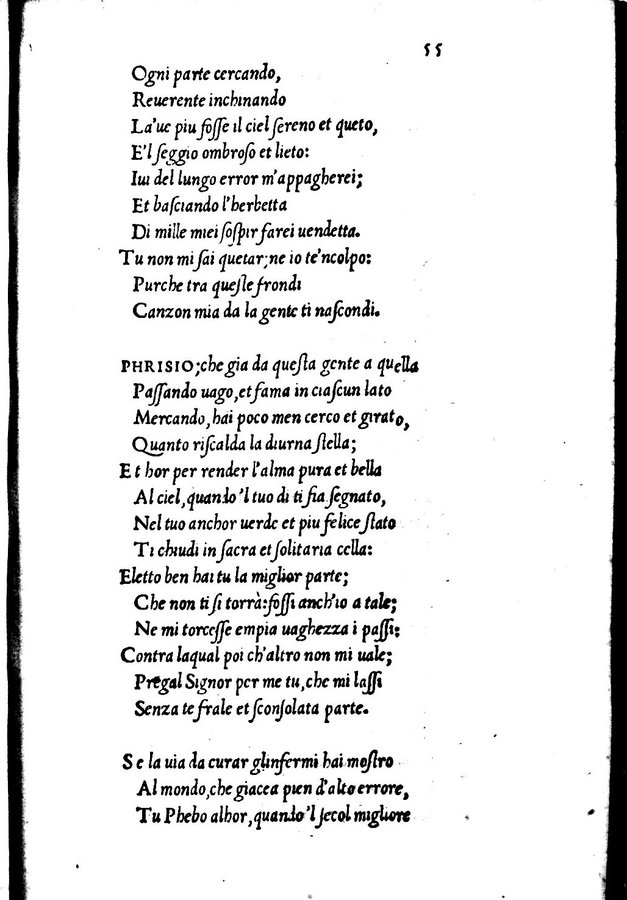 55
Ogni parte cercando,
Reuerente inchinando
La'ue piu foſſe il ciel ſereno et queto,
E'l ſeggio ombroſo et lieto:
Iui del lungo error m'appagherei;
Et baſciando l'herbetta
Di mille miei ſoſpir farei uendetta.
Tu non mi ſai quetar; ne io te'ncolpo:
Purche tra queſte frondi
Canzon mia da la gente ti naſcondi.
PHRISIO; che gia da queſta gente a quella
Paſſando uago, et fama in ciaſcun lato
Mercando, hai poco men cerco et girato,
Quanto riſcalda la diurna ſtella;
Et hor per render l'alma pura et bella
Al ciel, quando 'l tuo di ti ſia ſegnato,
Nel tuo anchor uerde et piu felice ſtato
Ti chiudi in ſacra et ſolitaria cella:
Eletto ben hai tu la miglior parte;
Che non ti ſi torrà: foſſi anch'io a tale;
Ne mi torceſſe empia uaghezza i paſſi:
Contra laqual poi ch'altro non mi uale;
Pregal Signor per me tu, che mi laſſi
Senza te frale et ſconſolata parte.
Se la uia da curar glinfermi hai moſtro
Al mondo, che giacea pien d'alto errore,
Tu Phebo alhor, quando 'l ſecol migliore